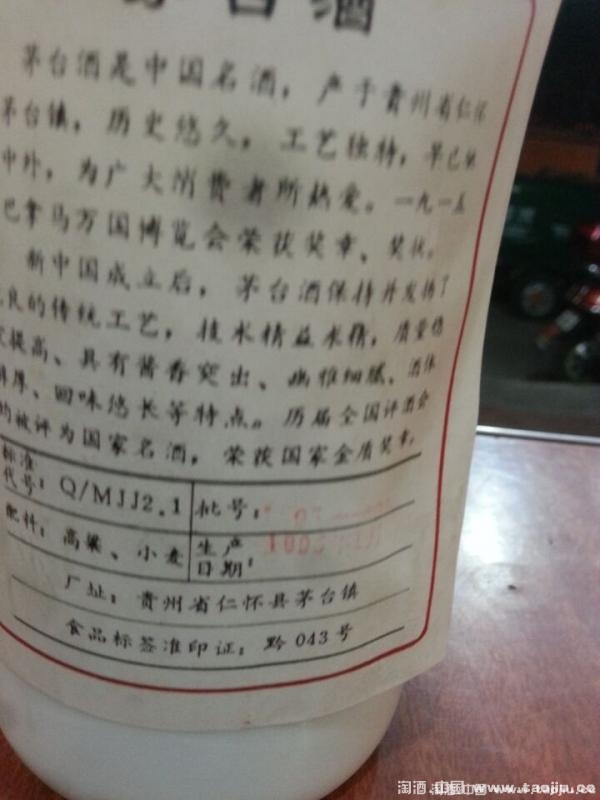 茅台酒
茅台酒是中国名酒，产于贵州省仁怀
茅台镇，历史悠久，工艺独特，早已
中外，为广大消费者所热爱。一九一五
巴拿马万国博览会荣获奖章、奖状。
新中国成立后，茅台酒保持并发扬了
良的传统工艺，技术精益求精，质量稳
提高、具有酱香突出、幽雅细腻、酒体
醇厚、回味悠长等特点。历届全国评酒会
均被评为国家名酒，荣获国家金质奖章。
标准
代号：Q/MJJ2.1 批号：
配料：高粱、小麦 生产
日期：
厂址：贵州省仁怀县茅台镇
食品标签准印证：黔043号
淘酒 中国 www.taojiu.cc